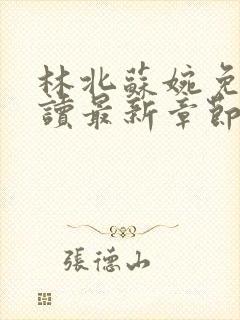 林北蘇婉免
讀最新章節
張德山